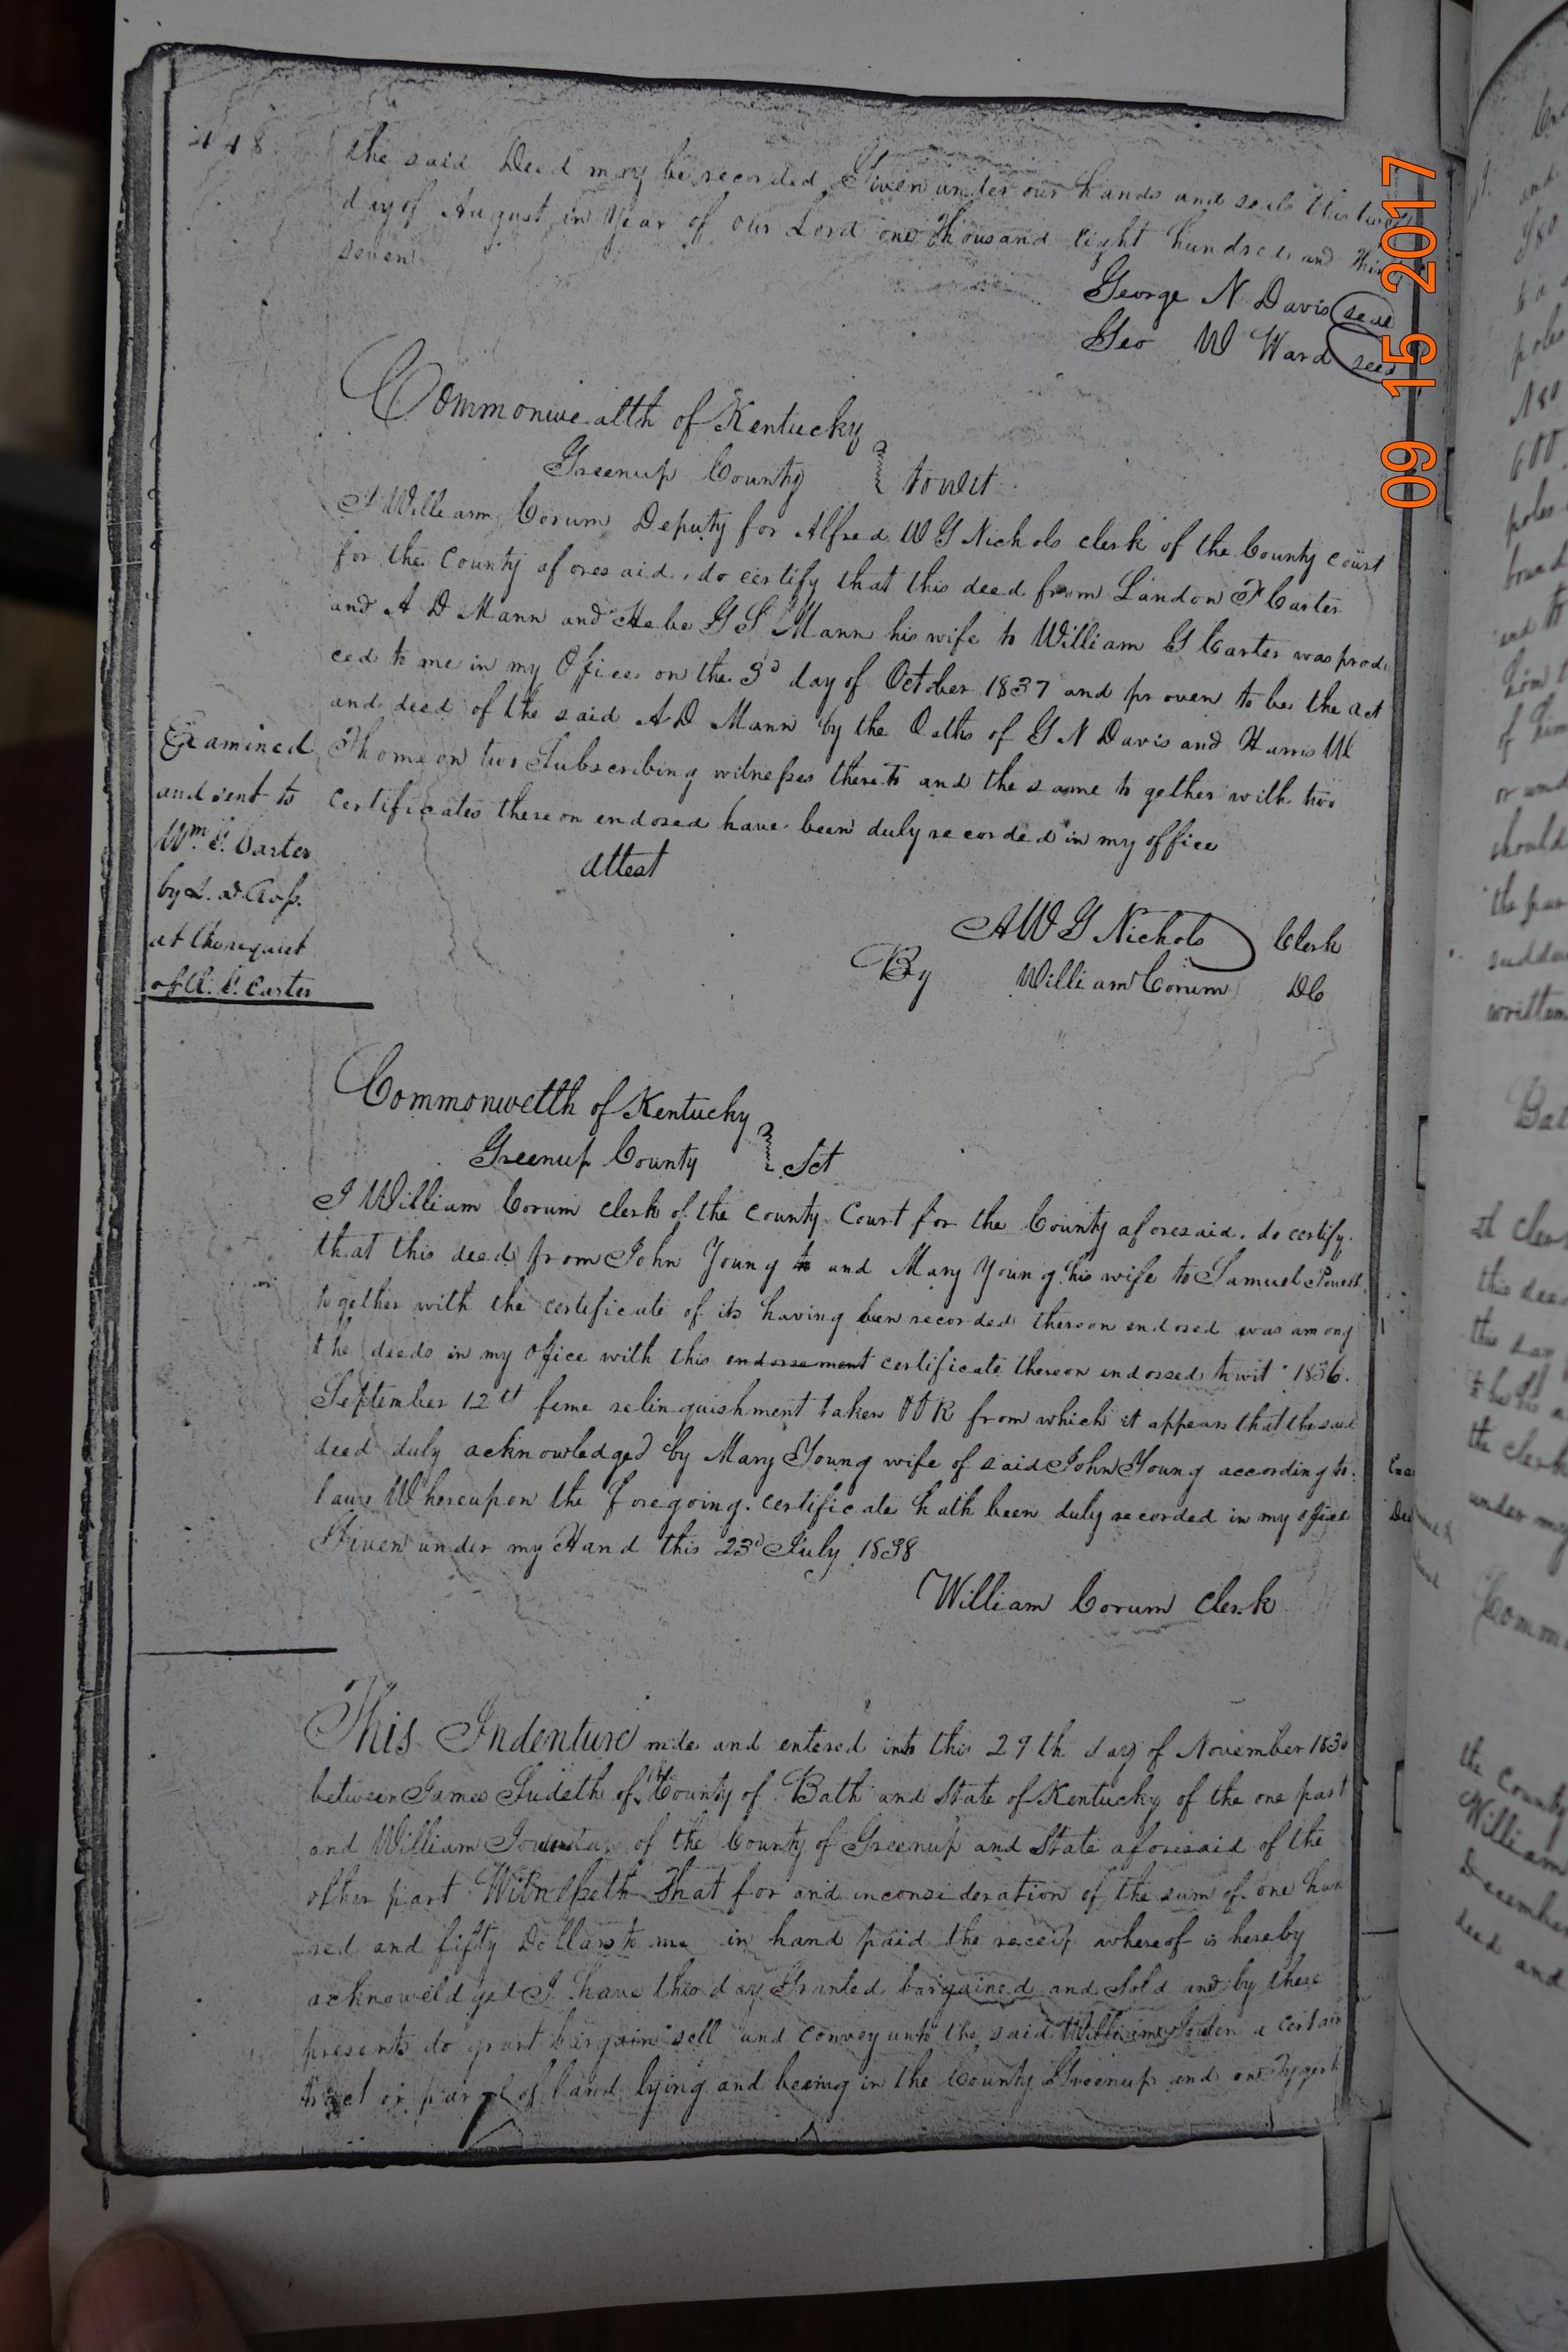 448
the said Deed may be recorded, Given under our hands and seals this
day of August in Year of our Lord one thousand eight hundred and
seven
George N Davis seal
Geo W Ward seal
Commonwealth of Kentucky
Greenup County } towit
I William Corum Deputy for Alfred W G Nichols clerk of the County court
for the County aforesaid, do certify that this deed from Landon F Carter
and A D Mann and Hebe G S Mann his wife to William G Carter was produ
ced to me in my Office on the 3d day of October 1837 and proven to be the act
and deed of the said A D Mann by the Oaths of G N Davis and Harris W
Thomson two Subscribing witnesses thereto and the same to gether with two
certificates thereon endosed have been duly recorded in my office
attest
AWG Nichols Clerk
By William Corum DC
Examined
and sent to
Wm G. Carter
by L. D. Ross.
at the request
of Carter
Commonwetlth of Kentucky
Greenup County } Sct
I William Corum clerk of the County Court for the County aforesaid, do certify
that this deed from John Young to and Mary Young his wife to Samuel Powell
together with the certificate of its having been recorded thereon endosed was among
the deeds in my Office with this endorsement certificate thereon endossed, towit 1836.
September 12th feme relinquishment taken OK from which it appears that the said
deed duly acknowledged by Mary Young wife of said John Young according to
law Whereupon the foregoing certificate hath been duly recorded in my office
Given under my Hand this 23d July 1838
William Corum Clerk
This Indenture mde and entered into this 29th day of November 183
between James Sudeth of the County of Bath and State of Kentucky of the one part
and William of the County of Greenup and State aforesaid of the
other part Witnesseth That for and inconsideration of the sum of one hun
red and fifty Dollars to me in hand paid the receip whereof is hereby
acknoweldged I have this day Granted bargained and Sold and by these
presents do grant bargain sell and convey unto the said William a certain
tract or parcel of land lying and being in the County Greenup and on Tygert
09 15 2017